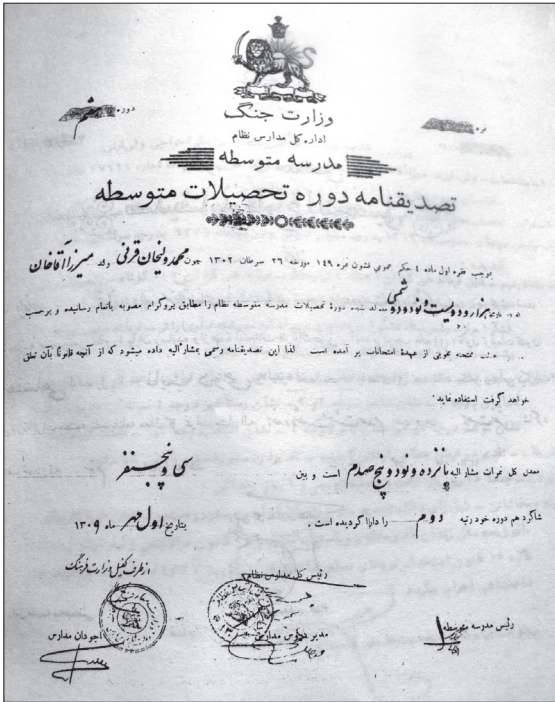 نمره
دوره ششم
وزارت جنگ
اداره کل مدارس نظام
مدرسه متوسطه
تصدیقنامه دوره تحصیلات متوسطه
بموجب فقره اول ماده ٤ حکم عمومی قشون نمره ١٤٩ مورخه ٢٦ سرطان ١٣٠٢ چون محمد ولیخان قرنی ولد میرزا آقاخان
هزار و دویست و نود و دو شمسی متولد شده دورهٔ تحصیلات مدرسه متوسطه نظام را مطابق پروگرام مصوبه باتمام رسانیده و برحسب
هیئت ممتحنه بخوبی از عهدهٔ امتحانات بر آمده است لذا این تصدیقنامه رسمی بمشارالیه داده میشود که از آنچه قانوناً بآن تعلق
خواهد گرفت استفاده نماید
معدل کل نمرات مشار الیه پانزده و نود و پنج صدم است و بین سی و پنج نفر
شاگرد هم دوره خود رتبه دوم را دارا گردیده است .
بتاریخ اول مهر ماه ١٣٠٩
از طرف کفیل وزارت فرهنگ
رئیس کل مدارس نظام
رئیس مدرسه متوسطه
مدیر دروس مدارس
آجودان مدارس